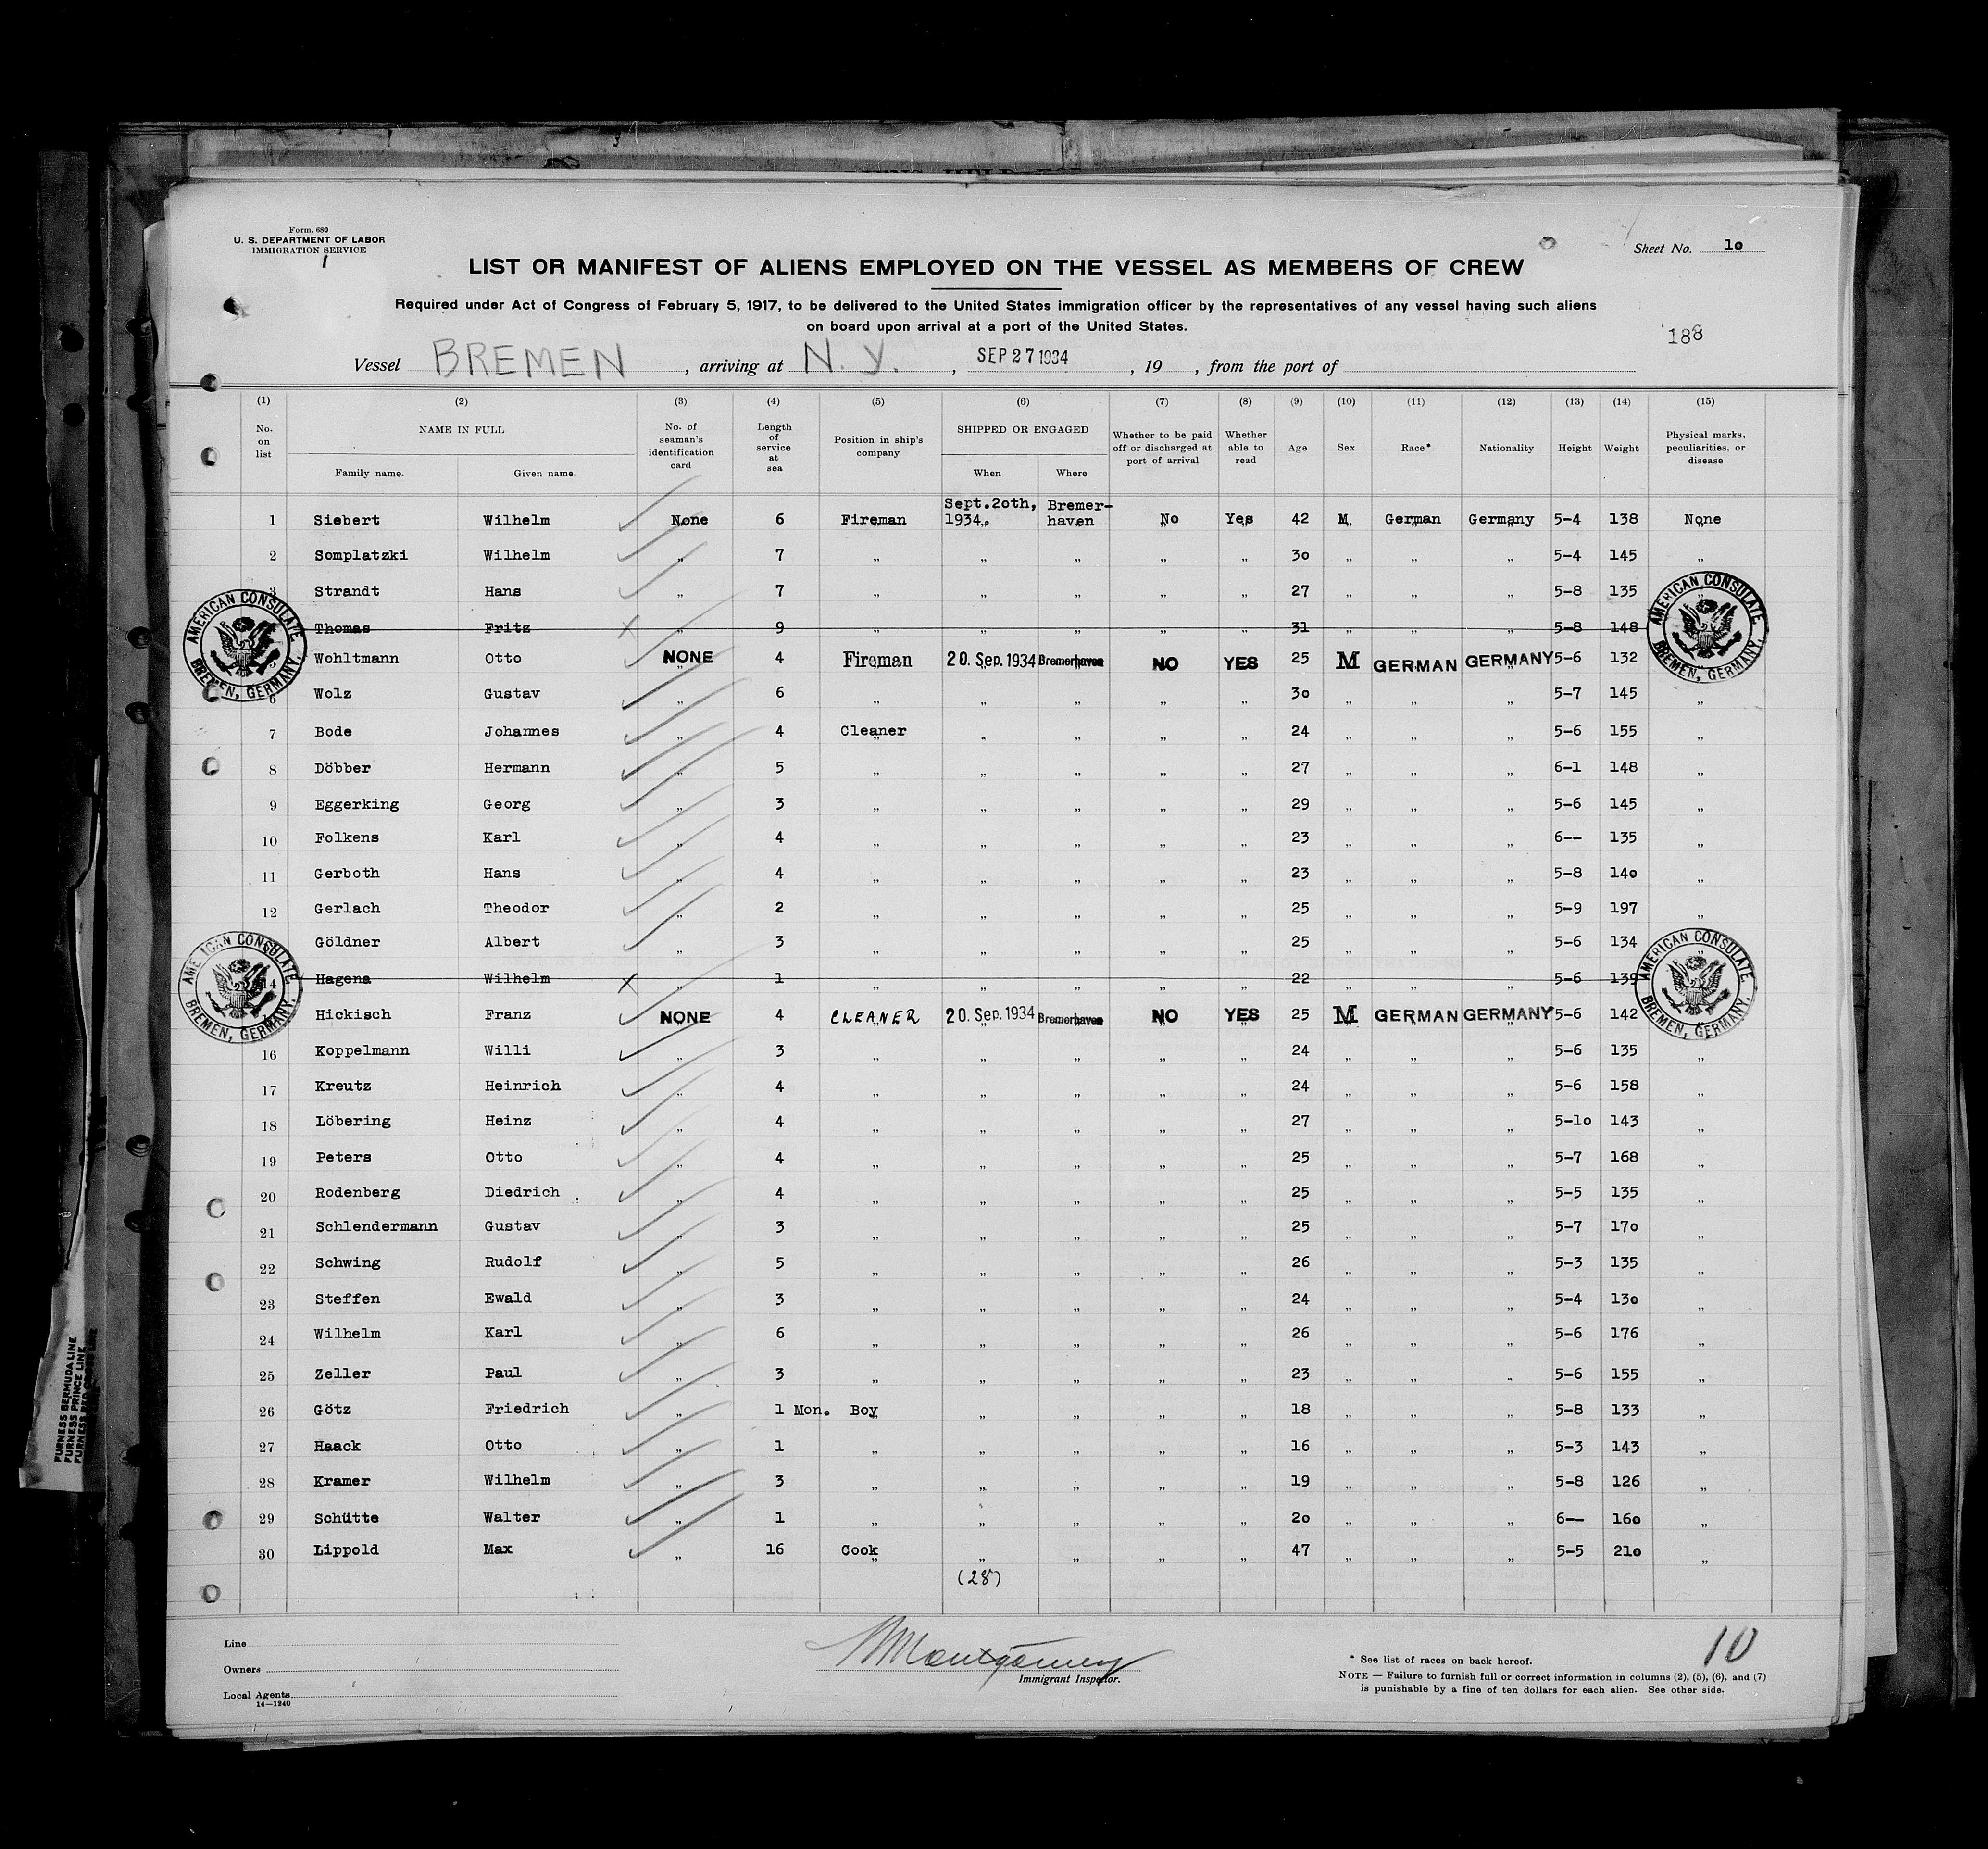 Form. 680
U. S. DEPARTMENT OF LABOR
IMMIGRATION SERVICE
Sheet No. 10
LIST OR MANIFEST OF ALIENS EMPLOYED ON THE VESSEL AS MEMBERS OF CREW
Required under Act of Congress of February 5, 1917, to be delivered to the United States immigration officer by the representatives of any vessel having such aliens
on board upon arrival at a port of the United States.
188
Vessel BREMEN, arriving at N. Y., SEP 27 1934, 19 , from the port of
(1) (2) (3) (4) (5) (6) (7) (8) (9) (10) (11) (12) (13) (14) (15)
No. on list NAME IN FULL Family name. Given name. No. of seaman's identification card Length of service at sea Position in ship's company SHIPPED OR ENGAGED When Where Whether to be paid off or discharged at port of arrival Whether able to read Age Sex Race* Nationality Height Weight Physical marks, peculiarities, or disease
1 Siebert Wilhelm None 6 Fireman Sept.20th, 1934. Bremer-haven No Yes 42 M German Germany 5-4 138 None
2 Somplatzki Wilhelm „ 7 „ „ „ „ „ 30 „ „ „ 5-4 145 „
3 Strandt Hans „ 7 „ „ „ „ „ 27 „ „ „ 5-8 135 „
Thomas Fritz „ 9 „ „ „ „ „ 31 „ „ „ 5-8 148
5 Wohltmann Otto NONE 4 Fireman 20. Sep. 1934 Bremerhaven NO YES 25 M GERMAN GERMANY 5-6 132
6 Wolz Gustav „ 6 „ „ „ „ „ 30 „ „ „ 5-7 145 „
7 Bode Johannes „ 4 Cleaner „ „ „ „ 24 „ „ „ 5-6 155 „
8 Döbber Hermann „ 5 „ „ „ „ „ 27 „ „ „ 6-1 148 „
9 Eggerking Georg „ 3 „ „ „ „ „ 29 „ „ „ 5-6 145 „
10 Folkens Karl „ 4 „ „ „ „ „ 23 „ „ „ 6-- 135 „
11 Gerboth Hans „ 4 „ „ „ „ „ 23 „ „ „ 5-8 140 „
12 Gerlach Theodor „ 2 „ „ „ „ „ 25 „ „ „ 5-9 197 „
Göldner Albert „ 3 „ „ „ „ „ 25 „ „ „ 5-6 134 „
14 Hagena Wilhelm „ 1 „ „ „ „ „ 22 „ „ „ 5-6 139
Hickisch Franz NONE 4 CLEANER 20. Sep. 1934 Bremerhaven NO YES 25 M GERMAN GERMANY 5-6 142
16 Koppelmann Willi „ 3 „ „ „ „ „ 24 „ „ „ 5-6 135 „
17 Kreutz Heinrich „ 4 „ „ „ „ „ 24 „ „ „ 5-6 158 „
18 Löbering Heinz „ 4 „ „ „ „ „ 27 „ „ „ 5-10 143 „
19 Peters Otto „ 4 „ „ „ „ „ 25 „ „ „ 5-7 168 „
20 Rodenberg Diedrich „ 4 „ „ „ „ „ 25 „ „ „ 5-5 135 „
21 Schlendermann Gustav „ 3 „ „ „ „ „ 25 „ „ „ 5-7 170 „
22 Schwing Rudolf „ 5 „ „ „ „ „ 26 „ „ „ 5-3 135 „
23 Steffen Ewald „ 3 „ „ „ „ „ 24 „ „ „ 5-4 130 „
24 Wilhelm Karl „ 6 „ „ „ „ „ 26 „ „ „ 5-6 176 „
25 Zeller Paul „ 3 „ „ „ „ „ 23 „ „ „ 5-6 155 „
26 Götz Friedrich „ 1 Mon. Boy „ „ „ „ 18 „ „ „ 5-8 133 „
27 Haack Otto „ 1 „ „ „ „ „ 16 „ „ „ 5-3 143 „
28 Kramer Wilhelm „ 3 „ „ „ „ „ 19 „ „ „ 5-8 126 „
29 Schütte Walter „ 1 „ „ „ „ „ 20 „ „ „ 6-- 160 „
30 Lippold Max „ 16 Cook „ „ „ „ 47 „ „ „ 5-5 210 „
(28)
AMERICAN CONSULATE BREMEN, GERMANY.
AMERICAN CONSULATE BREMEN, GERMANY.
AMERICAN CONSULATE BREMEN, GERMANY.
AMERICAN CONSULATE BREMEN, GERMANY.
Line
Owners
Local Agents
14—1240
Montgomery
Immigrant Inspector.
10
* See list of races on back hereof.
NOTE — Failure to furnish full or correct information in columns (2), (5), (6), and (7)
is punishable by a fine of ten dollars for each alien. See other side.
FURNESS BERMUDA LINE
FURNESS PRINCE LINE
FURNESS RED CROSS LINE